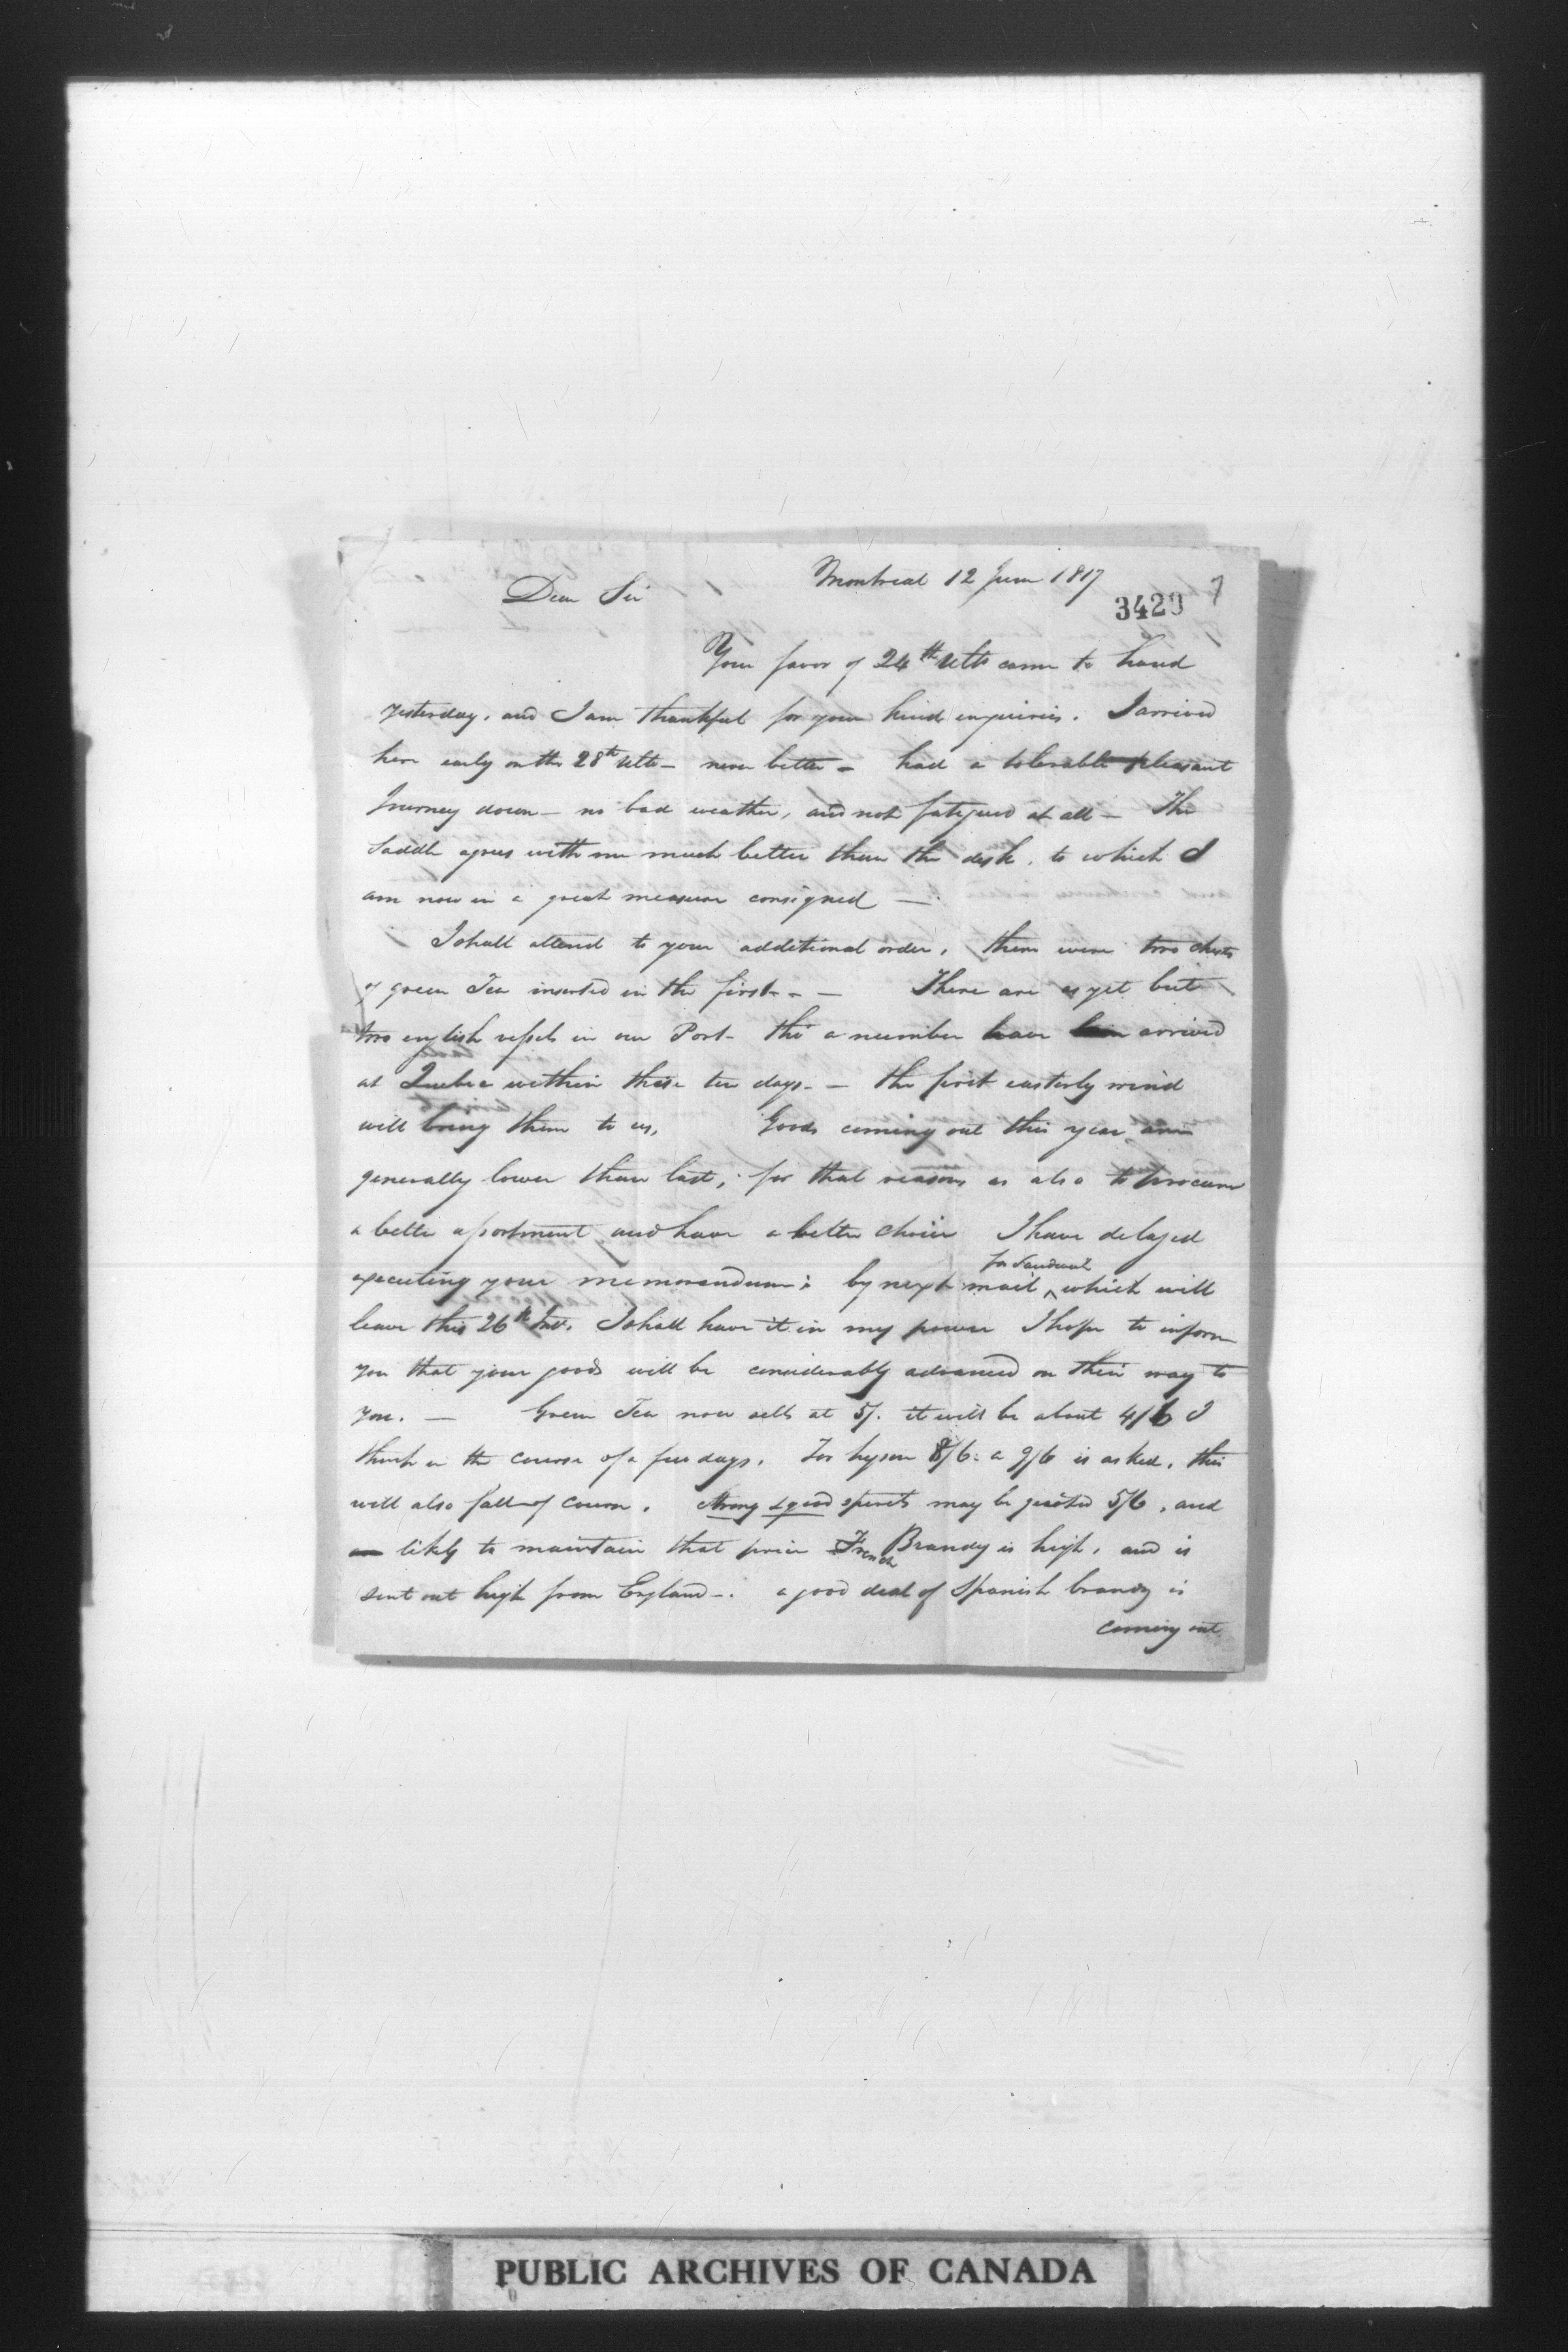 Montreal 12 June 1817
Dear Sir
3429
7
Your favor of 24th Ulto came to hand
yesterday, and I am thankful for your kind enquiries. I arrived
here early on the 28th Ulto - never better - had a tolerable pleasant
Journey down - no bad weather, and not fatigued at all - The
Saddle agrees with me much better than the desk, to which I
am now in a great measure consigned -
I shall attend to your additional order, there were two chests
of green Tea inserted in the first - - There are as yet but
two english vessels in our Port - tho' a number have been arrived
at Quebec within these ten days - - the first easterly wind
will bring them to us, Goods coming out this year are
generally lower than last, for that reason as also to procure
a better assortment and have a better choice I have delayed
executing your memorandum: by next mail, which will
for Sandwich
leave this 26th Inst. I shall have it in my power I hope to inform
you that your goods will be considerably advanced on their way to
you. - Green Tea now sells at 5/. it will be about 4/6 I
think in the course of a few days. For hyson 8/6 a 9/6 is asked, this
will also fall of course. Strong & good spirits may be quoted 5/6, and
likely to maintain that price French Brandy is high, and is
sent out high from England -. a good deal of Spanish brandy is
coming out
PUBLIC ARCHIVES OF CANADA